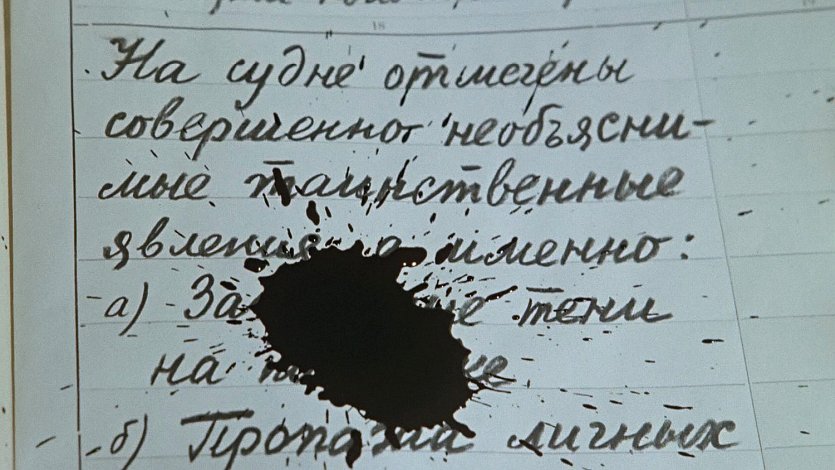 18
На судне отмечены
совершенно необъясни-
мые таинственные
явления, а именно:
а) тени
на
б) Пропажа личных